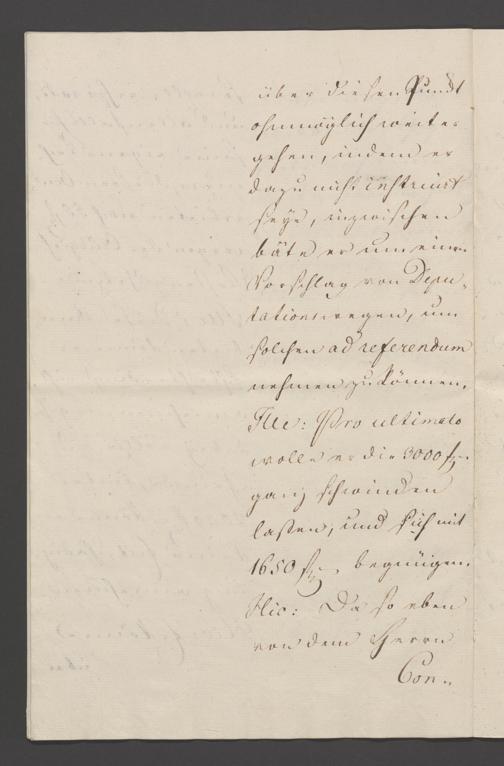 über diesen Punct
ohnmöglich weiter
gehen, indem er
dazu nicht instruirt
seye, inzwischen
bäte er um einen
Vorschlag von Depu-
tationswegen, um
solchen ad referendum
nehmen zu können.
Ille: Pro ultimato
wolle er die 3000 f
ganz schwinden
laßen, und sich mit
1650 f begnügen.
Hic: Da so eben
von dem Herrn
Con-